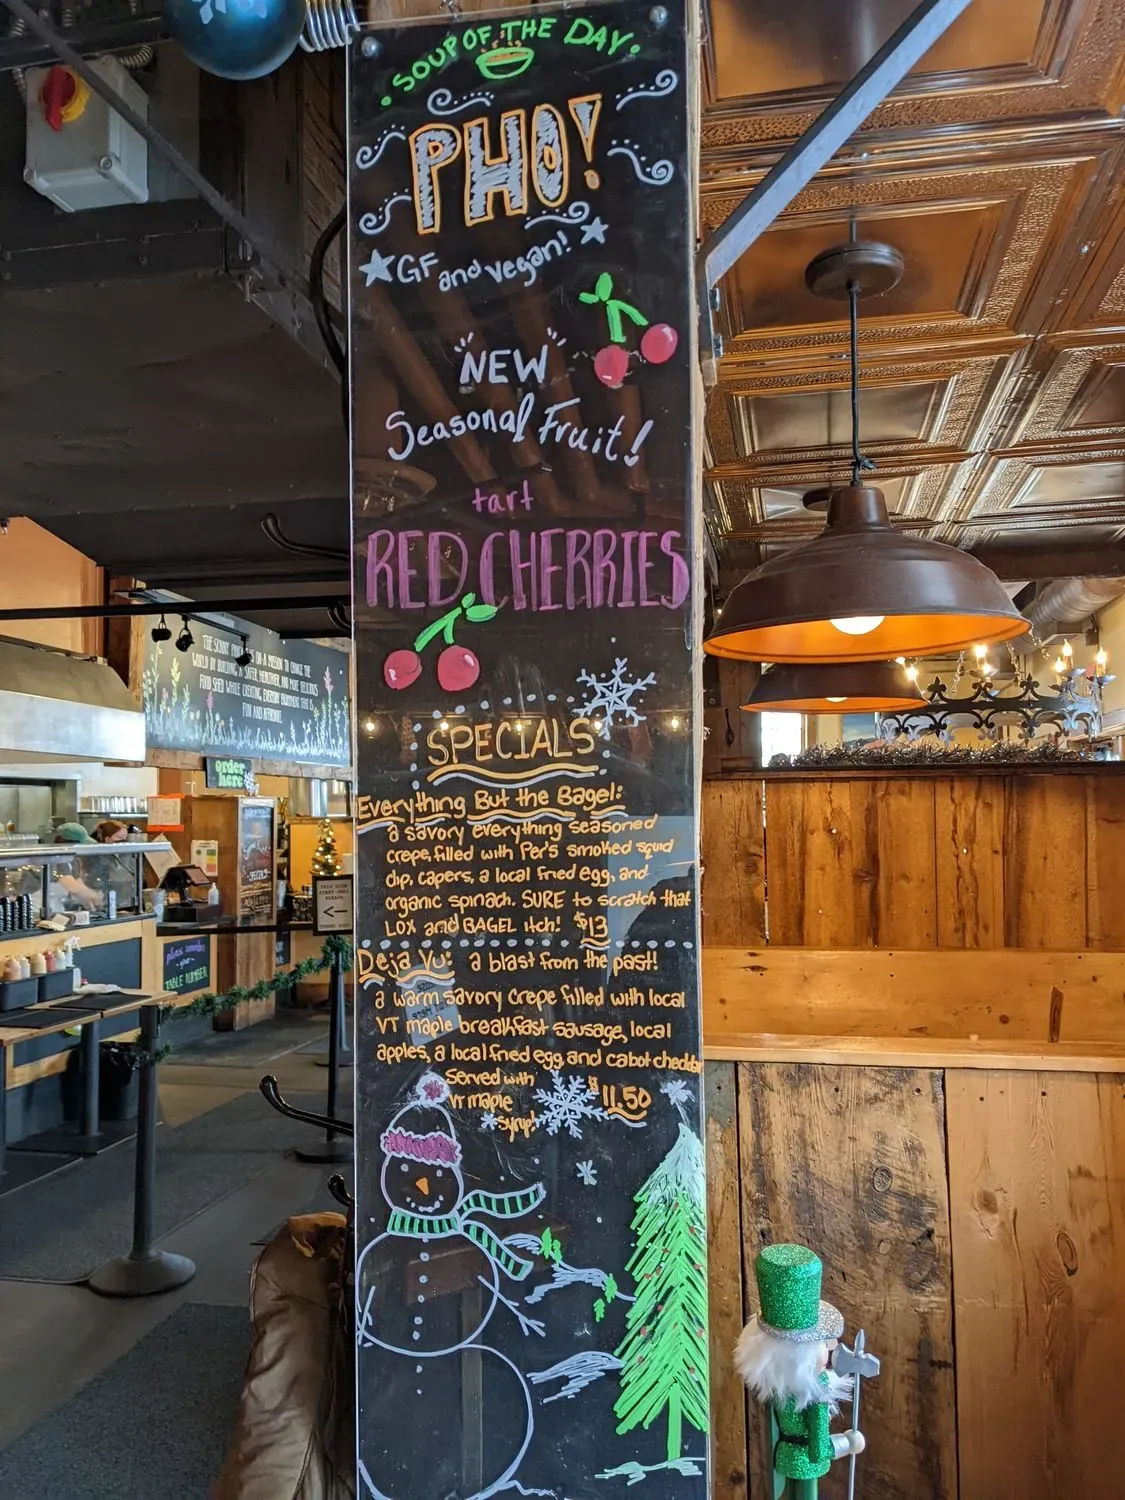 •SOUP OF THE DAY•
PHO!
GF and vegan!
"NEW"
Seasonal Fruit!
tart
RED CHERRIES
SPECIALS
Everything But the Bagel:
a savory everything seasoned
crepe, filled with Per's smoked squid
dip, capers, a local fried egg, and
organic spinach. SURE to scratch that
LOX and BAGEL itch! $13
Deja Vu: a blast from the past!
a warm savory crepe filled with local
VT maple breakfast sausage, local
apples, a local fried egg, and cabot cheddar
Served with
VT maple $11.50
syrup!
THE SKINNY PANCAKE IS ON A MISSION TO CHANGE THE
WORLD BY BUILDING A SAFER, HEALTHIER, AND MORE DELICIOUS
FOOD SHED WHILE CREATING EVERYDAY ENJOYMENT THAT IS
FUN AND AFFORDABLE
order
here
please remember
your
TABLE NUMBER